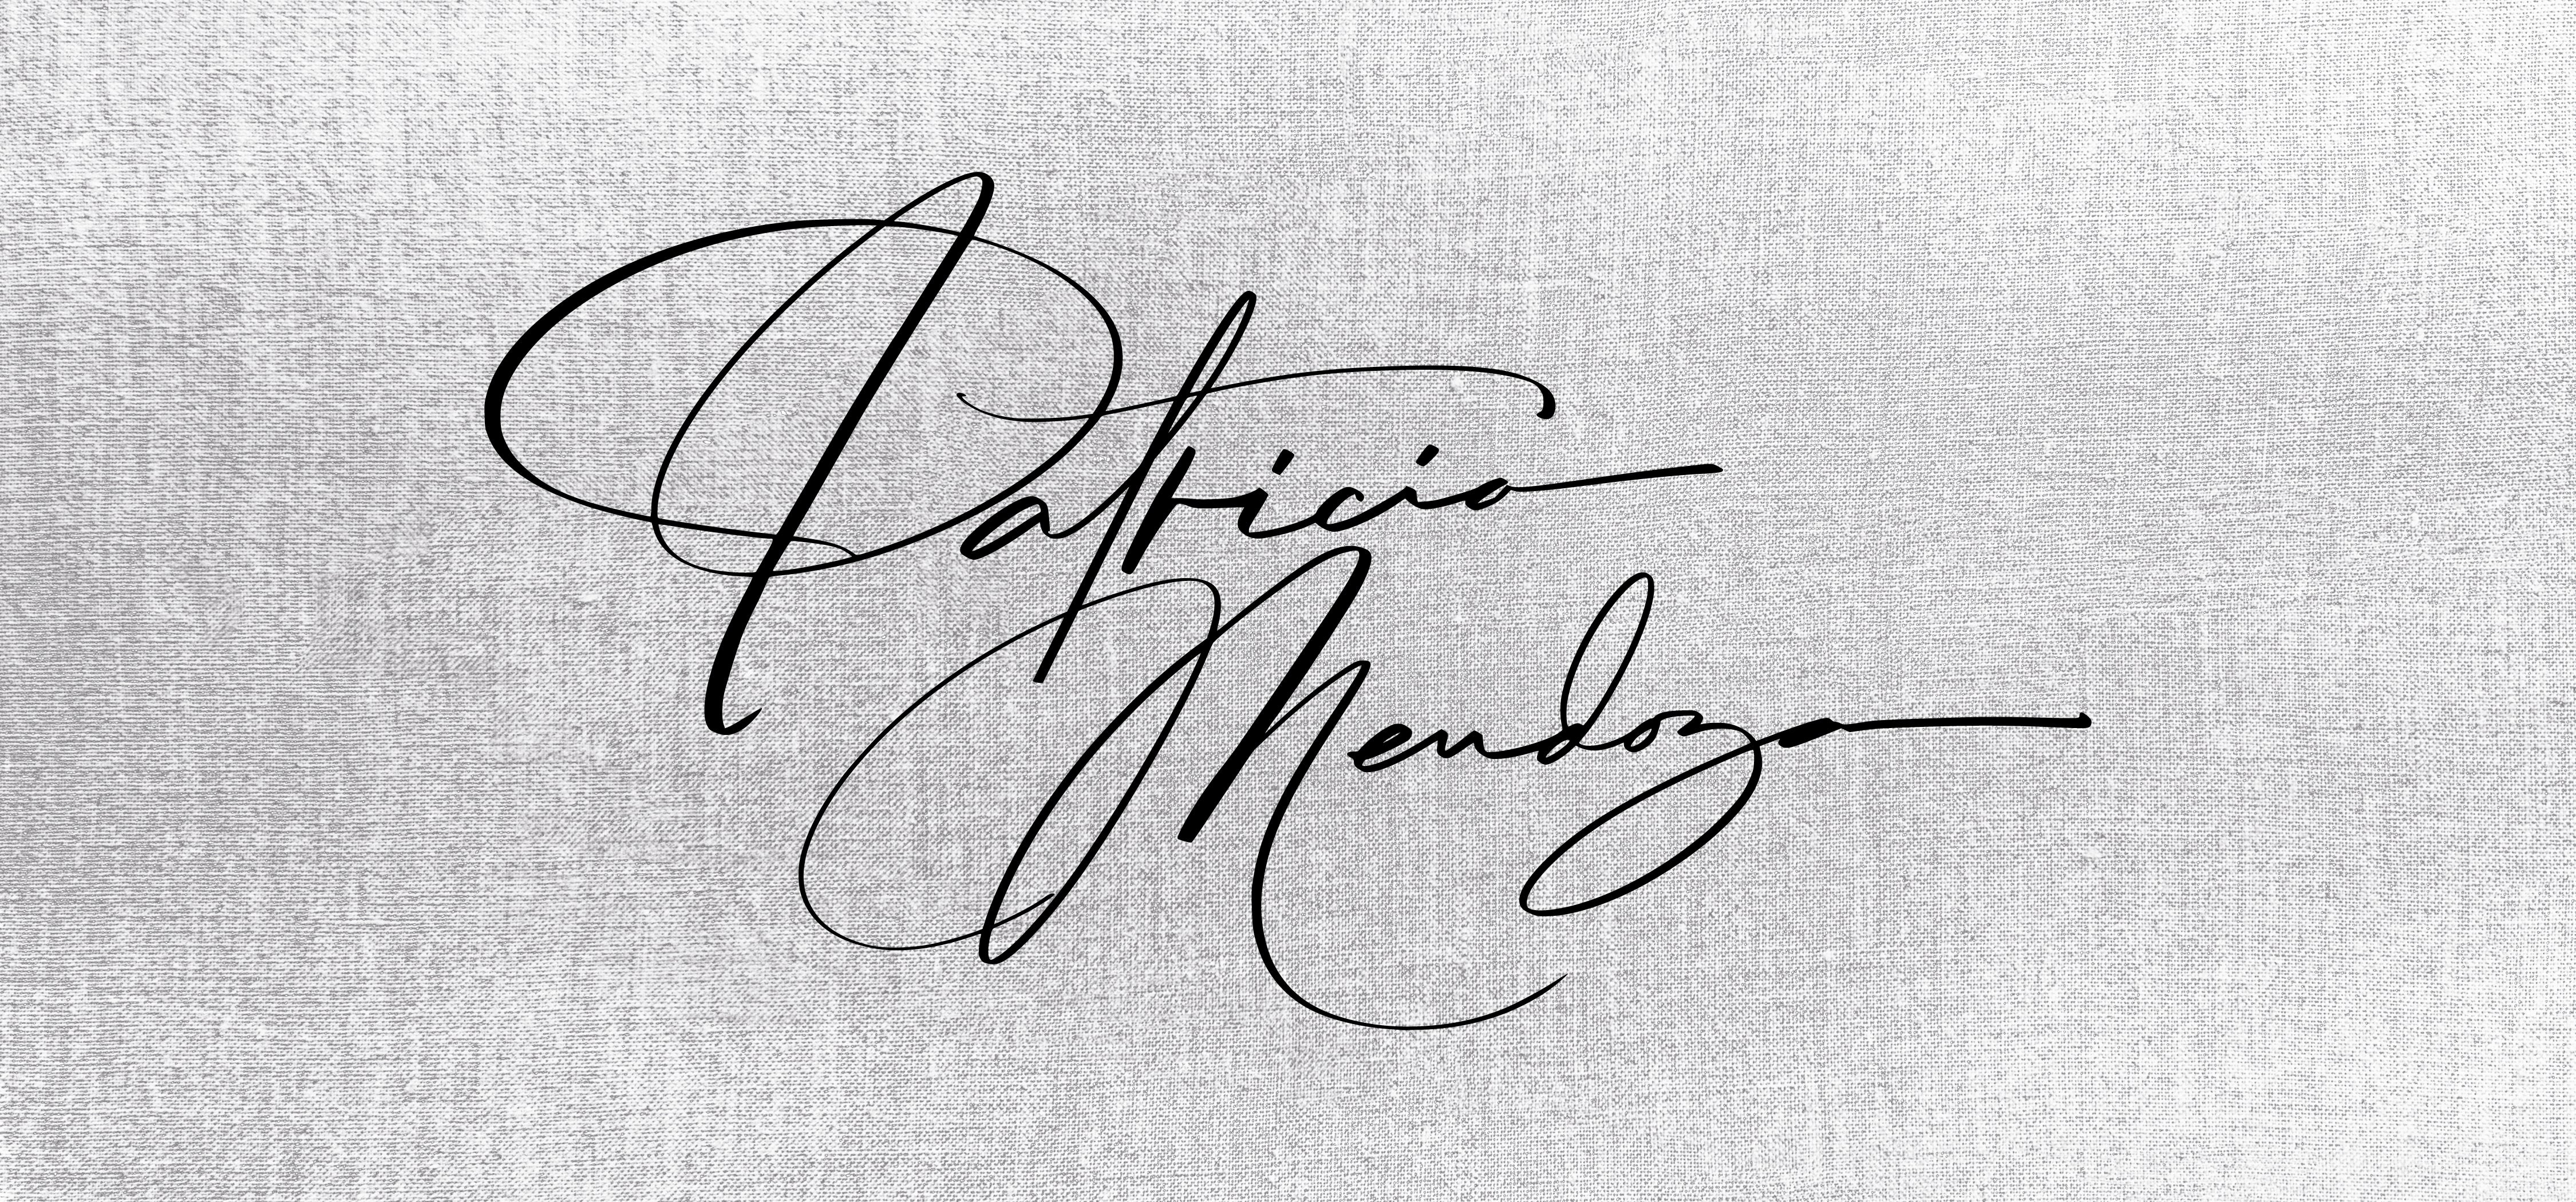 Patricia
Mendoza